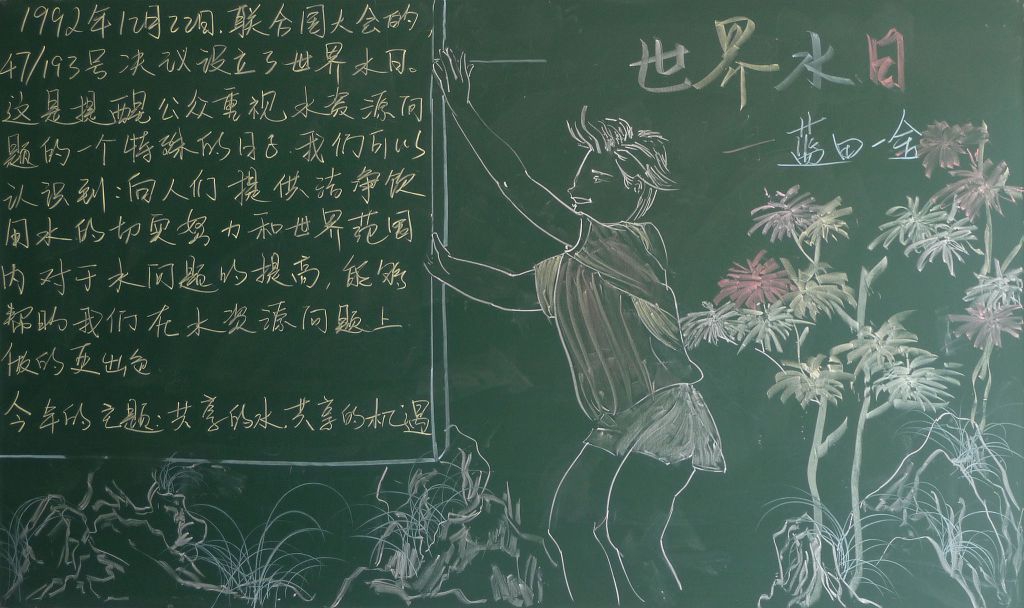 世界水日
一蓝田一金
1992年12月22日.联合国大会的,
47/193号决议设立了世界水日。
这是提醒公众重视水资源问
题的一个特殊的日子.我们可以
认识到:向人们提供洁净饮
用水的切实努力和世界范围
内对于水问题的提高,能够
帮助我们在水资源问题上
做的更出色
今年的主题:共享的水.共享的机遇